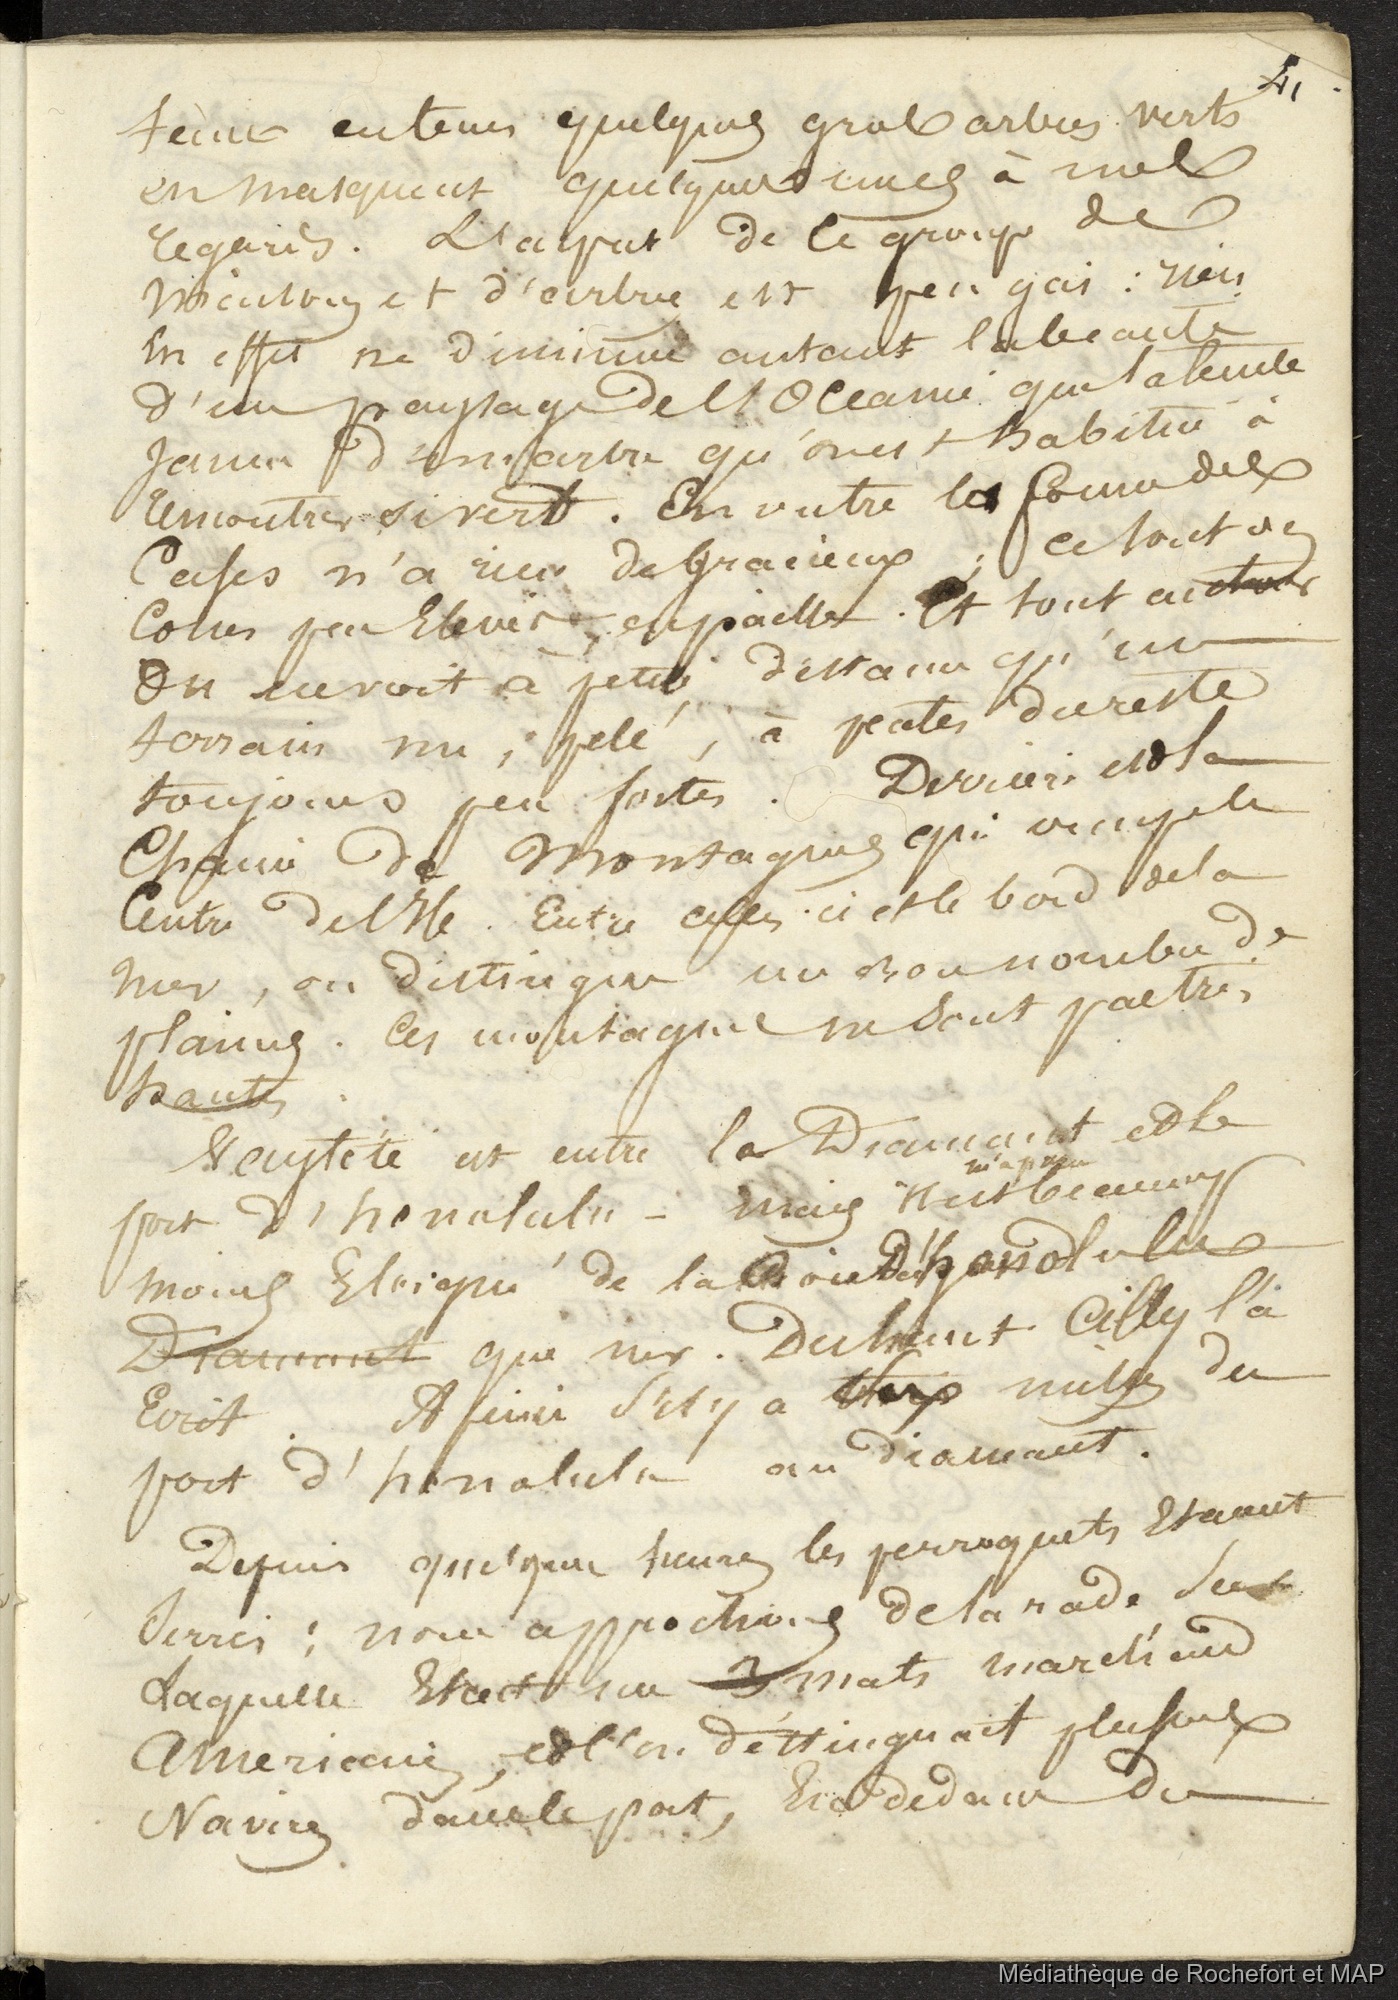 41
entend quelques gros arbres verts
en masquent quelques unes à nos
regards. L'aspect de ce groupe de
maisons et d'arbres est peu gai : rien
en effet ne diminue autant la beauté
d'un paysage de l'Oceanie que la teinte
jaune d'un arbre qu'on est habitué à
rencontrer si vert. En outre la forme des
Cases n'a rien de gracieux ; ce sont des
Cones peu Elevés, en paille. Et tout autour
On ne voit à petite distance qu'un
terrain nu, pelé, à pentes du reste
toujours peu fortes. Derriere est la
Chaine de Montagnes qui occupe le
Centre de l'Ile. Entre celles-ci et le bord de la
mer, on distingue un bon nombre de
plaines. Ces montagnes ne sont pas très
hautes.
Waytété est entre le Diamant et le
port d'honolulu - mais est beaucoup
m'a paru
moins Eloigné de la pointe d'honolulu
Diamant que moi. Duhaut Cilly l'a
Ecrit. A peine s'il y a milles du
port d'honolulu au diamant.
Depuis quelques heures les perroquets Etaient
Serrés ; nous approchions de la rade sur
Laquelle Etait un 3 mats marchand
Americain, et l'on distinguait plusieurs
Navires dans le port, En dedans du
Médiathèque de Rochefort et MAP